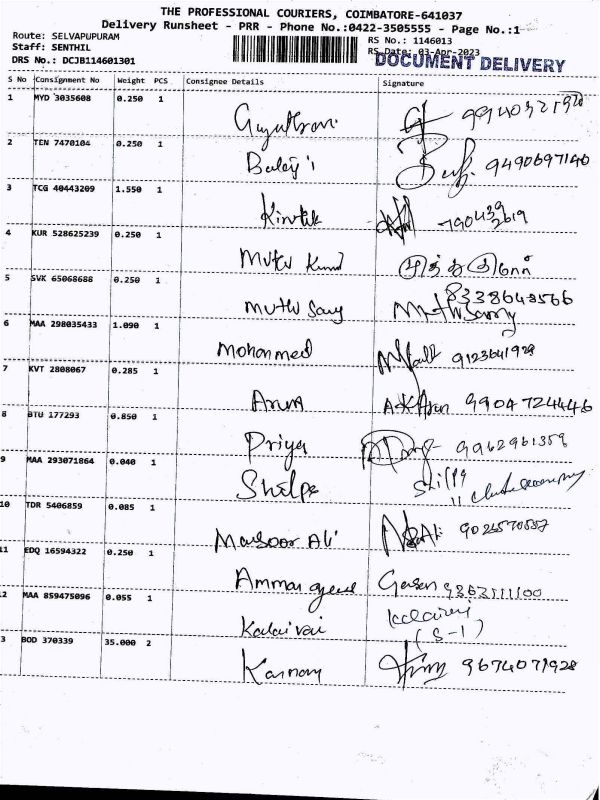 THE PROFESSIONAL COURIERS, COIMBATORE-641037
Delivery Runsheet - PRR - Phone No.:0422-3505555 - Page No.:1
Route: SELVAPUPURAM
RS No.: 1146013
Staff: SENTHIL
RS Date: 03-Apr-2023
DRS No.: DCJB114601301
DOCUMENT DELIVERY
S No Consignment No Weight PCS Consignee Details Signature
1 MYD 3035608 0.250 1
2 TEN 7470104 0.250 1 Balaji 9490697140
3 TCG 40443209 1.550 1 Kirthik
4 KUR 528625239 0.250 1
5 SVK 65068688 0.250 1 Muthu Samy 8338643566
Muthusamy
6 MAA 298035433 1.090 1 Mohammed 9123641928
7 KVT 2808067 0.285 1 Arun AK Arun 9904724446
8 BTU 177293 0.850 1 Priya 9962961359
9 MAA 293071864 0.040 1 Shilpa
10 TDR 5406859 0.085 1 Mansoor Ali
11 EDQ 16594322 0.250 1 Amman
2 MAA 859475096 0.055 1 Kalaivai
(S-1)
3 BOD 370339 35.000 2 9674071928